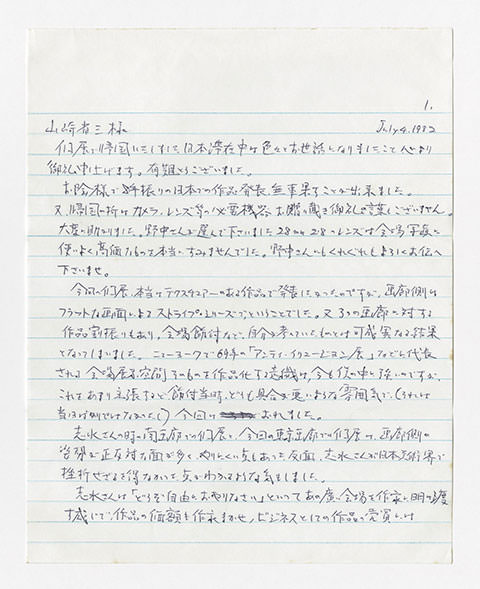 1.
山崎省三様 July 4. 1982
個展で帰国いたしました日本滞在中は色々とお世話になりましたこと心より
御礼申上げます。有難とうございました。
お陰様で 振りの日本での作品発表、無事果すことが出来ました。
又、帰国の折はカメラ、レンズ等の必要機器お贈り戴き御礼の言葉もございません。
大変に助かりました。野中さんが選んで下さいました28mm レンズは会場写真に
使いよく高価なものを本当にすみませんでした。野中さんにもくれぐれもよろしくお伝へ
下さいませ。
今回の個展、本当はテクスチュアーのある作品で発表したかったのですが、画廊側は
フラットな画面によるストライプ・シリーズでということでした。又3つの画廊に対する
作品割振りもあり、会場飾付など、自分が考えていたものとは可成異なる結果
となってしまいました。ニューヨークで69年の「アンティ・イリュージョン展」などに代表
される会場展示空間そのものを作品化する志機は、今も彼の中に強いのですが、
これをあまり主張すると飾付当時、どうも具合が悪いような雰囲気で、(それは
当り前の咄ではなかった!) 今回は おれました。
志水さんの時の南画廊での個展と、今回の東京画廊での個展は、画廊側の
姿勢で正反対な面が多く、やりにくい点もあった反面、志水さんが日本美術界で
挫折せざるを得なかった点がわかるような気もしました。
志水さんは「どうぞ自由におやりなさい」といってあの広い会場を作家に明け渡
す感じで、作品の価額も作家まかせ、ビジネスとしての作品の売買には